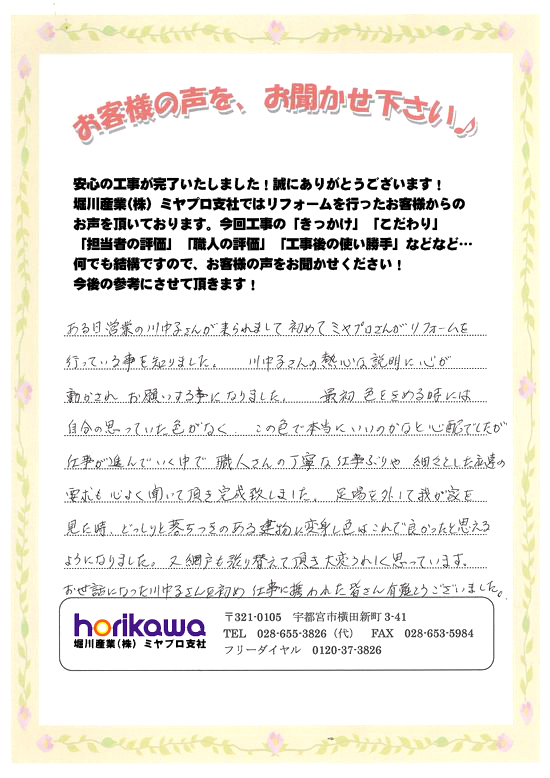 お客様の声を、お聞かせ下さい♪
安心の工事が完了いたしました！誠にありがとうございます！
堀川産業(株) ミヤプロ支社ではリフォームを行ったお客様からの
お声を頂いております。今回工事の「きっかけ」「こだわり」
「担当者の評価」「職人の評価」「工事後の使い勝手」などなど…
何でも結構ですので、お客様の声をお聞かせください！
今後の参考にさせて頂きます！
ある日営業の川中子さんが来られまして初めてミヤプロさんがリフォームを
行っている事を知りました。 川中子さんの熱心な説明に心が
動かされ お願いする事になりました。 最初 色を決める時には
自分の思っていた色がなく この色で本当にいいのかなと心配でしたが
仕事が進んでいく中で 職人さんの丁寧な仕事ぶりや 細々とした私達の
要求も 心よく聞いて頂き完成致しました。 足場を外して我が家を
見た時、どっしりと落ちつきのある建物に変身し色はこれで良かったと思える
ようになりました。又網戸も張り替えて頂き大変うれしく思っています。
お世話になった川中子さんを初め 仕事に携われた皆さん有難とうございました。
horikawa
堀川産業(株) ミヤプロ支社
〒321-0105 宇都宮市横田新町 3-41
TEL 028-655-3826（代） FAX 028-653-5984
フリーダイヤル 0120-37-3826